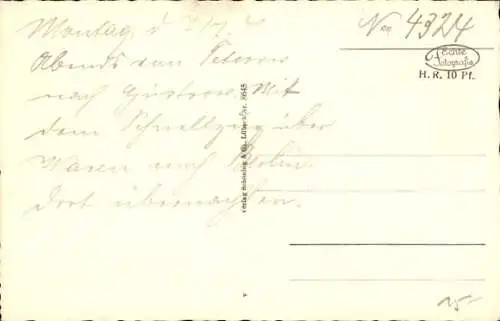 Montag d.
Abends von Teterow
nach Güstrow. Mit
dem Schnellzug über
Waren nach Berlin.
Dort übernachten.
No 4324
Echte
Fotografie
H. R. 10 Pf.
Verlag Schöning & Co., Lübeck Nr. 8648
15-